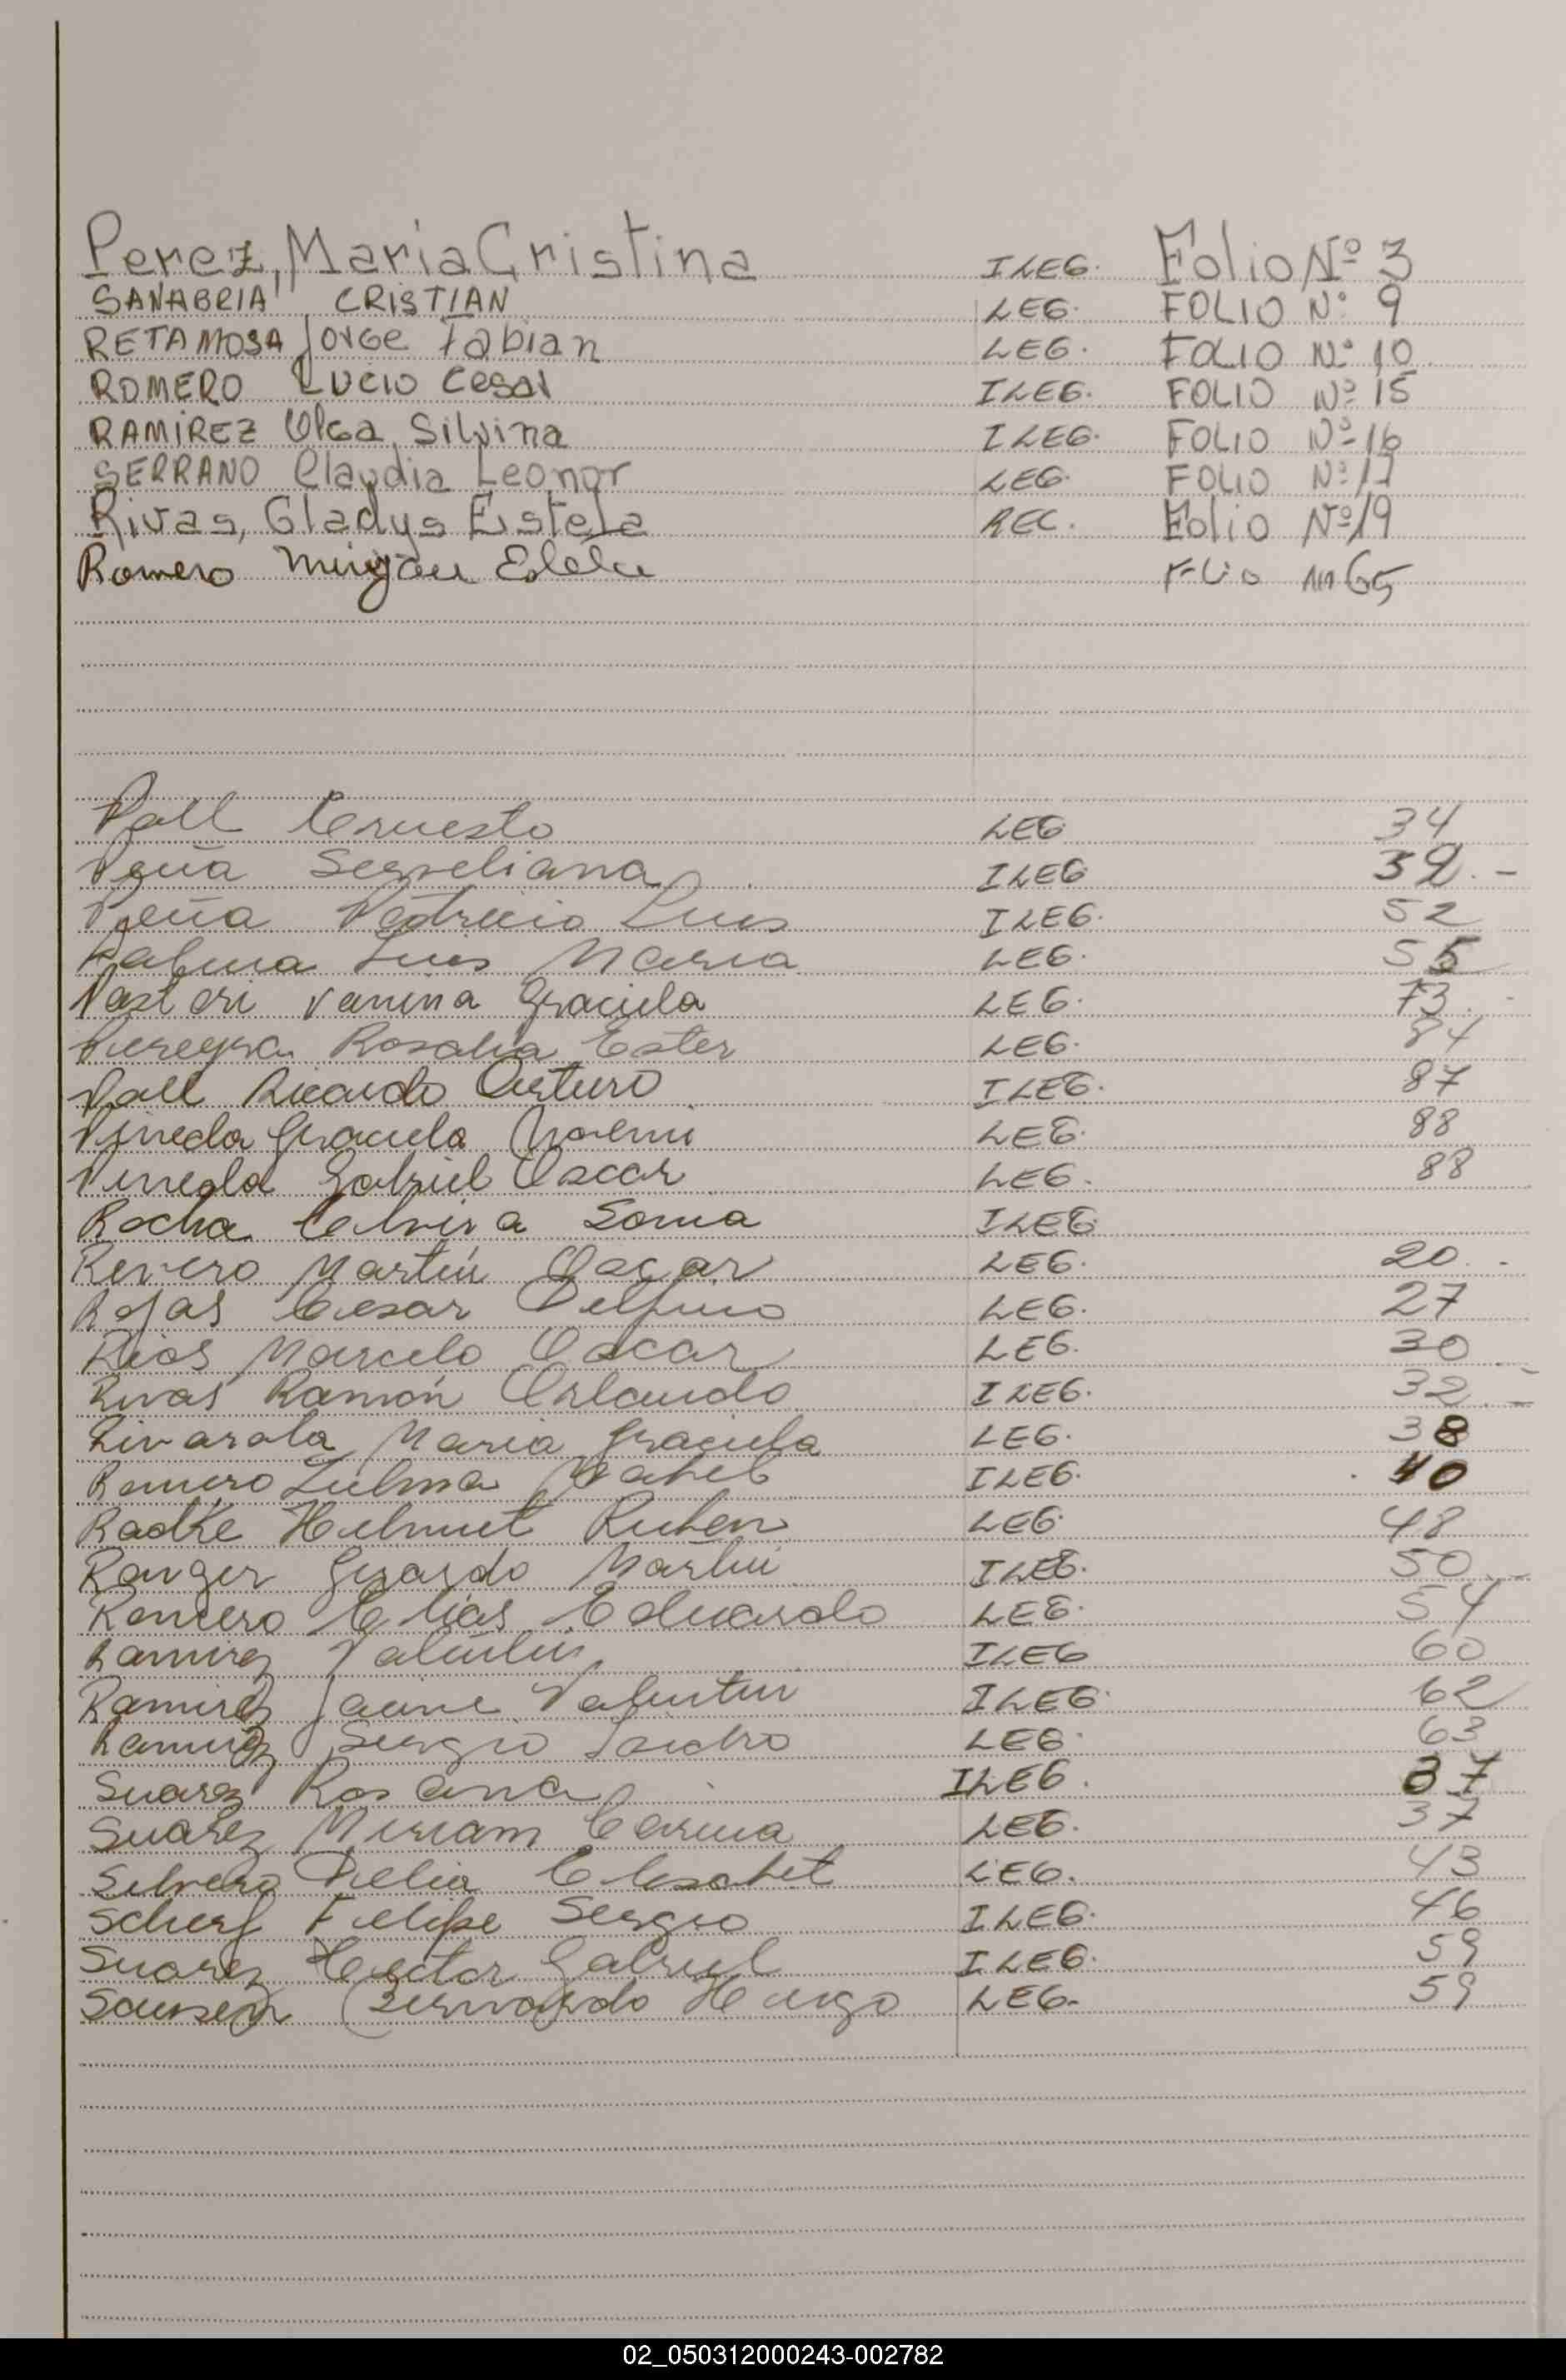 Perez, Maria Cristina ILEG. Folio Nº 3
SANABRIA CRISTIAN LEG. FOLIO Nº 9
RETAMOSA Jorge Fabian LEG. FOLIO Nº 10
ROMERO Lucio Cesar ILEG. FOLIO Nº 15
RAMIREZ Olga Silvina ILEG. FOLIO Nº 16
SERRANO Claudia Leonor LEG. FOLIO Nº 17
Rivas, Gladys Estela REC. Folio Nº 19
Romero Folio 65
Pall Ernesto LEG 34
Peña ILEG 39.-
Peña Patricio Luis ILEG. 52
Luis Maria LEG. 55
Pasteri Vanina Graciela LEG. 73.
Pereyra Rosalia Ester LEG. 84
Pall Ricardo Arturo ILEG. 87
Pineda Graciela Noemi LEG. 88
Pineda Gabriel Oscar LEG. 88
Rocha Elvira Sonia ILEG.
Rivero Martin Oscar LEG. 20.-
Rojas Cesar Delfino LEG. 27
Rios Marcelo Oscar LEG. 30
Rivas Ramón Orlando ILEG. 32.-
Rivarola Maria Graciela LEG. 38
Romero Zulma Mabel ILEG. 40
Radke Helmut Ruben LEG. 48
Ranger Gerardo Martin ILEG. 50.-
Romero Elias Eduardo LEG. 54
Ramirez Valentin ILEG 60
Ramirez Jaime Valentin ILEG. 62
Ramirez Sergio Sandro LEG. 63
Suarez Rosana ILEG. 37
Suarez Miriam Carina LEG. 37
Silvero Delia Elisabet LEG. 43
Scherf Felipe Sergio ILEG. 46
Suarez Hector Gabriel ILEG. 59
Bernardo Hugo LEG- 59
02_050312000243-002782